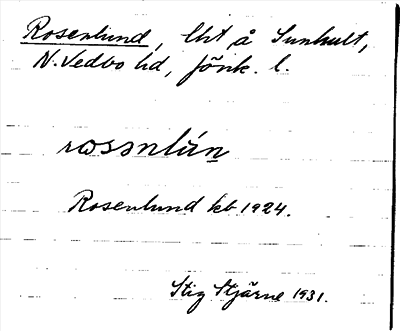 Rosenlund, lht å Sunhult,
N. Vedbo hd, Jönk. l.
Rosenlund kb 1924.
Stig Stjärne 1931.